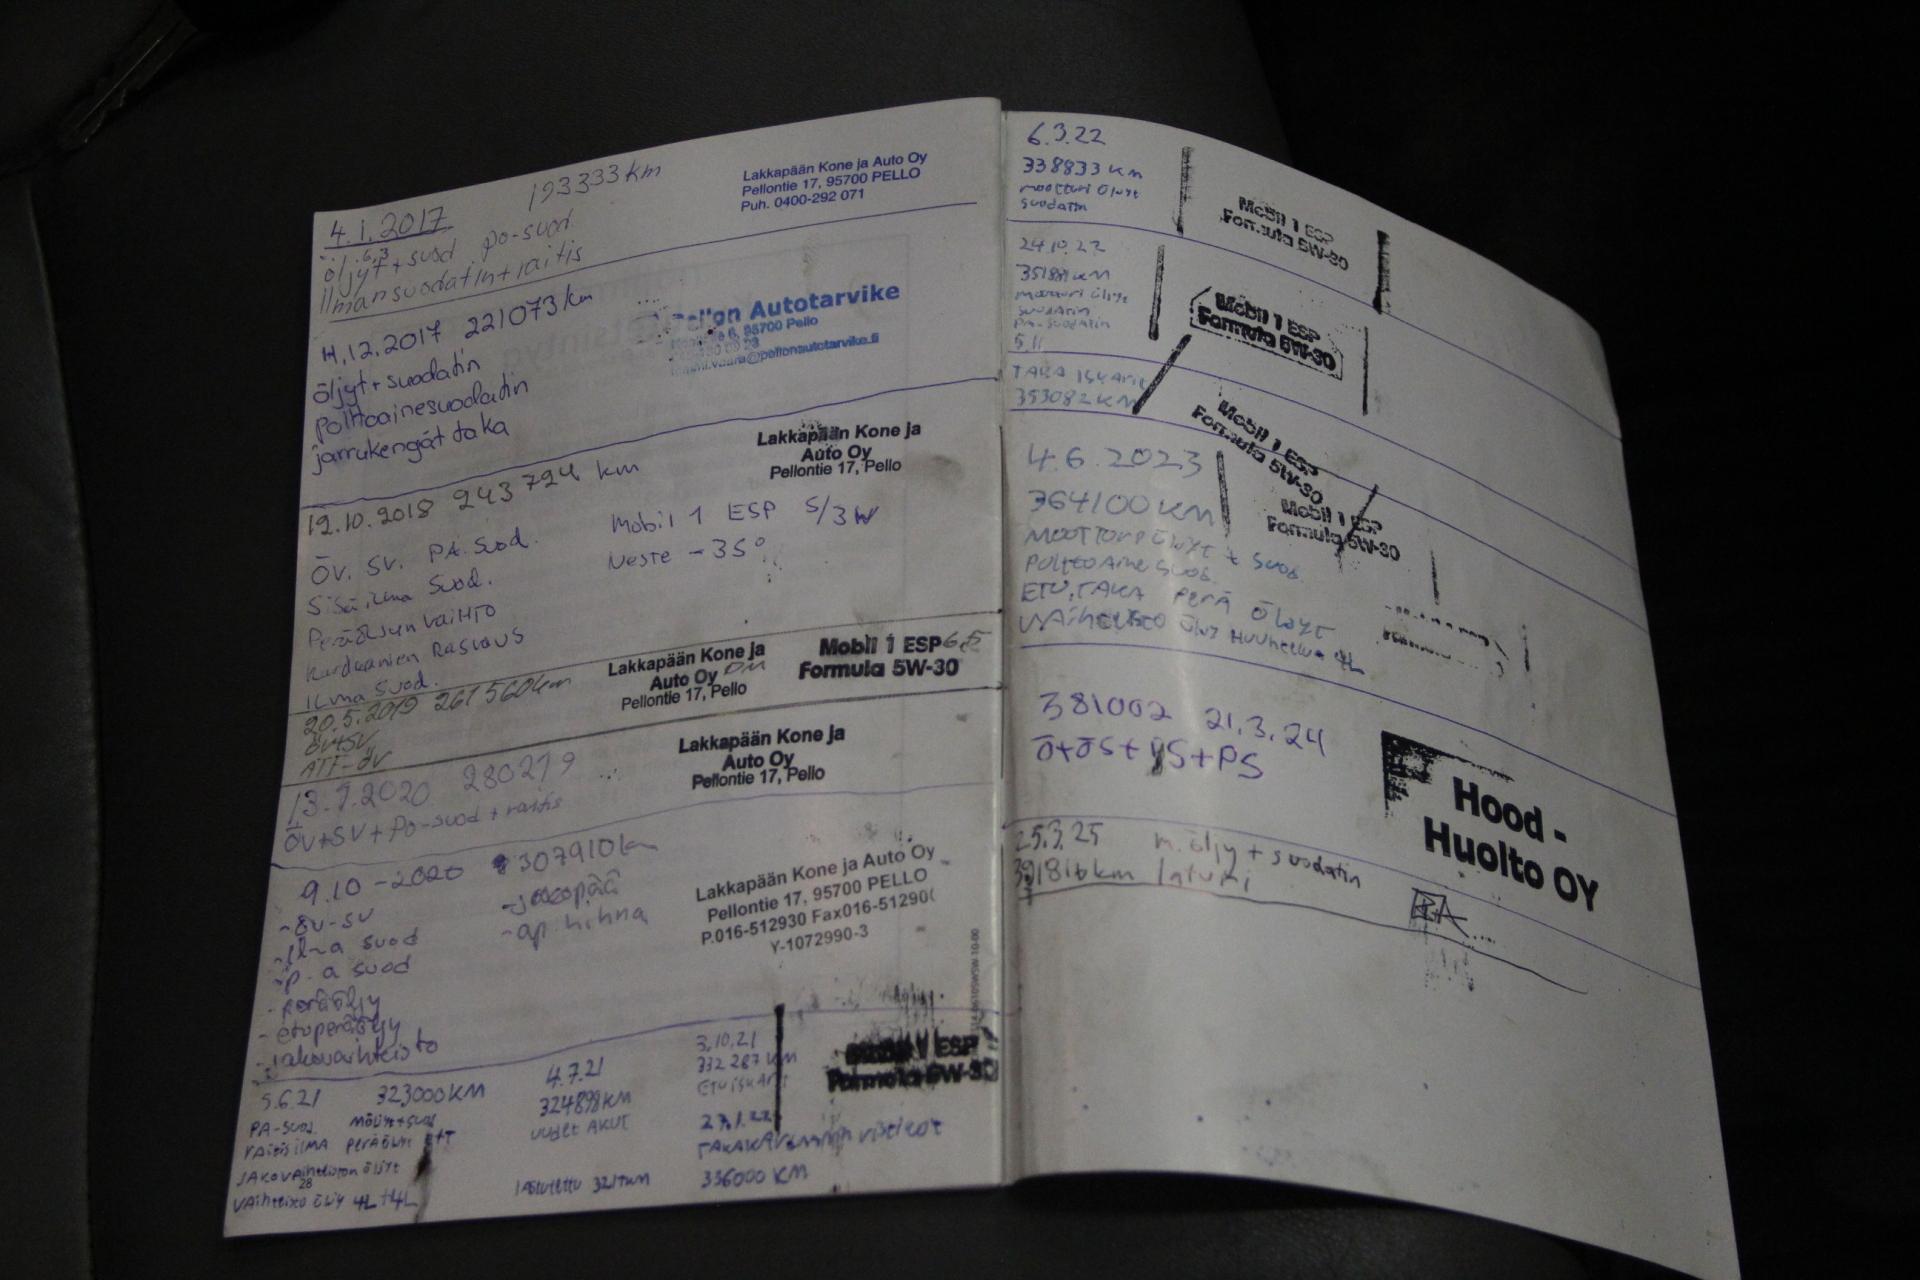 4.1.2017 193333 km
öljyt + suod po-suod
6,3
Ilmansuodatin + raitis
Lakkapään Kone ja Auto Oy
Pellontie 17, 95700 PELLO
Puh. 0400-292 071
12.2017 221073 km
öljyt + suodatin
polttoainesuodatin
jarrukengät taka
Pellon Autotarvike
6, 95700 Pello
@pellonautotarvike.fi
12.10.2018 243724 km
ÖV. SV. PA. Suod.
Sisäilma Suod.
Peräöljyn vaihto
Kardaanien Rasvaus
Ilma Suod.
Mobil 1 ESP 5/3W
Neste -35°
Lakkapään Kone ja
Auto Oy
Pellontie 17, Pello
20.5.2019 261560km
öv+sv
ATF-öv
Lakkapään Kone ja
Auto Oy
Pellontie 17, Pello
Mobil 1 ESP 6,5
Formula 5W-30
280279
öv+sv + po-suod + raitis
Lakkapään Kone ja
Auto Oy
Pellontie 17, Pello
9.10-2020 307910km
-öv-sv
-il-a suod
-p-a suod
-peräöljy
-etuperäöljy
-jakovaihteisto
-jakopää
-ap hihna
Lakkapään Kone ja Auto Oy
Pellontie 17, 95700 PELLO
P.016-512930 Fax016-51290
Y-1072990-3
5.6.21 323000KM
PA-suod. möljyt+suod
raitisilma peräöljyt E+T
jakovaihteiston öljyt
28
vaihteisto öljy 4L+4L
4.7.21
324898KM
uudet AKUT
3.10.21
332287 KM
Etuiskari
336000 KM
Mobil 1 ESP
Formula 5W-30
6.3.22
338833 KM
moottori öljyt
suodatin
Mobil 1 ESP
Formula 5W-30
24.10.22
moottori öljyt
suodatin
PA-suodatin
5.11
TAKA ISKARIT
353082 KM
Mobil 1 ESP
Formula 5W-30
4.6.2023
364100 KM
MOOTTORI ÖLJYT + suod
POLTTOAINE SUOD.
ETU, TAKA PERÄ ÖLJYT
VAIHTEISTO ÖLJY HUUHTELU 4L
Mobil 1 ESP
Formula 5W-30
Mobil 1 ESP
Formula 5W-30
381002 21.3.24
Ö+ÖS+IS+PS
Hood -
Huolto OY
25.3.25 m.öljy + suodatin
391816km laturi